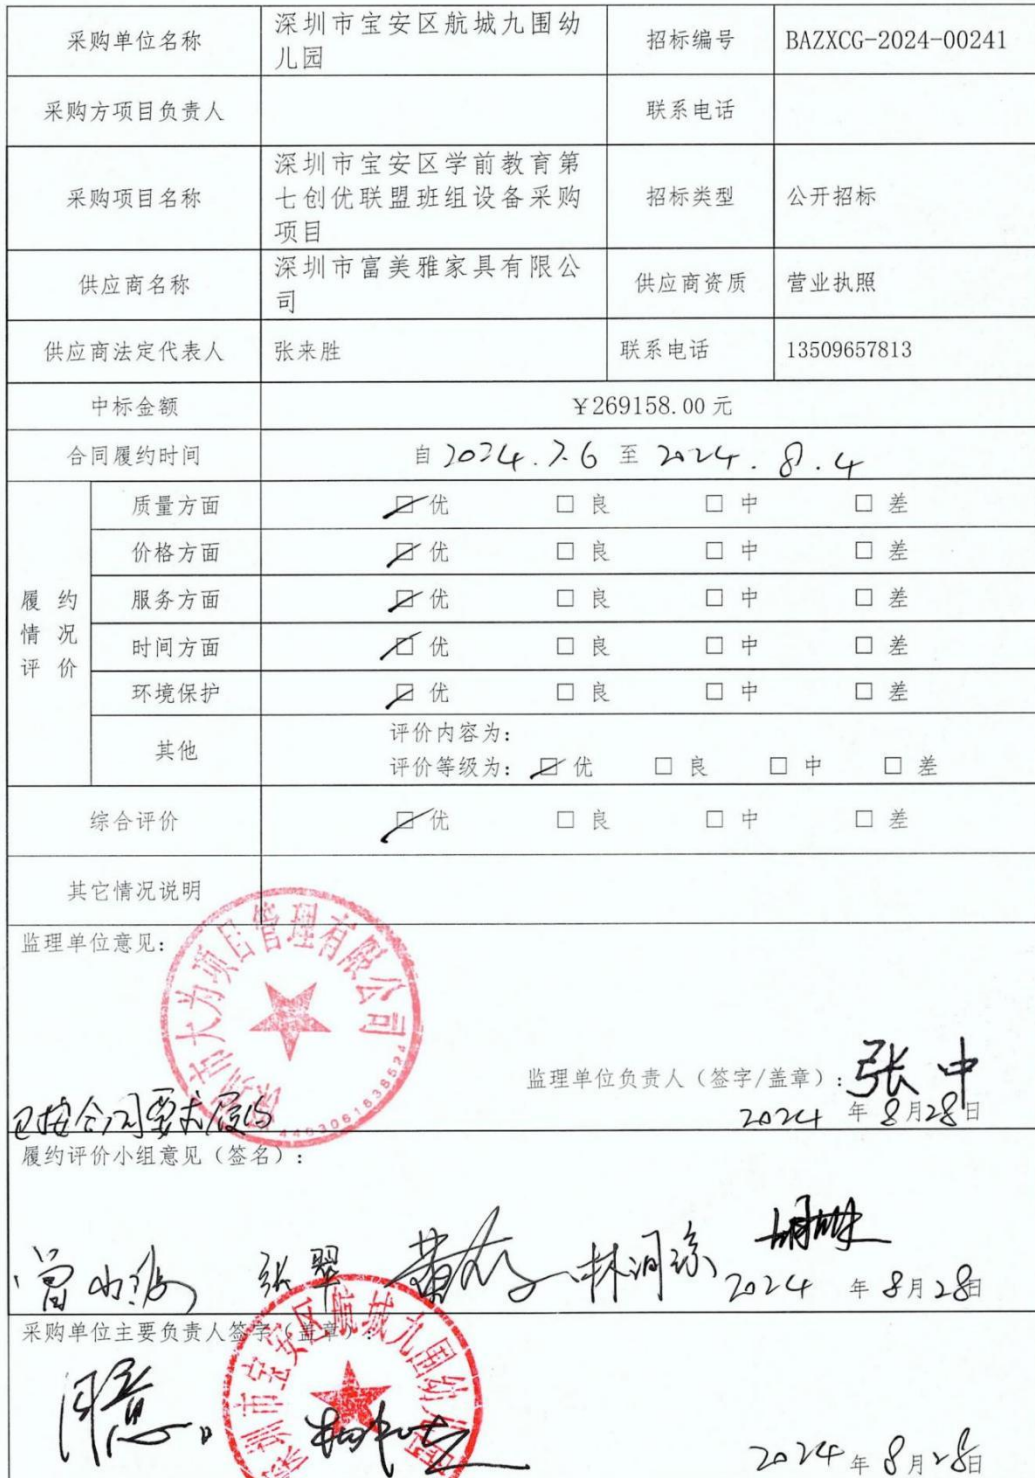 采购单位名称 深圳市宝安区航城九围幼
儿园 招标编号 BAZXCG-2024-00241
采购方项目负责人 联系电话
采购项目名称 深圳市宝安区学前教育第
七创优联盟班组设备采购
项目 招标类型 公开招标
供应商名称 深圳市富美雅家具有限公
司 供应商资质 营业执照
供应商法定代表人 张来胜 联系电话 13509657813
中标金额 ¥269158.00元
合同履约时间 自2024.7.6至2024.8.4
履约
情况
评价
质量方面 ☑优 □良 □中 □差
价格方面 ☑优 □良 □中 □差
服务方面 ☑优 □良 □中 □差
时间方面 ☑优 □良 □中 □差
环境保护 ☑优 □良 □中 □差
其他 评价内容为:
评价等级为: ☑优 □良 □中 □差
综合评价 ☑优 □良 □中 □差
其它情况说明
监理单位意见:
深圳市大为项目管理有限公司
监理单位负责人(签字/盖章): 张中
已按合同要求履约
2024年8月28日
履约评价小组意见(签名):
张翠 林润琼
2024年8月28日
采购单位主要负责人签字(盖章):
深圳市宝安区航城九围幼儿园
同意。
2024年8月28日